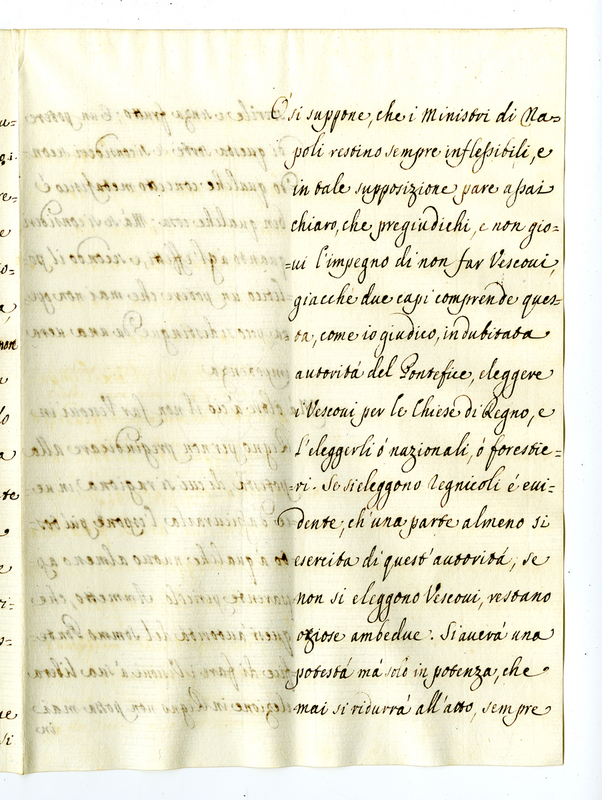 O' si suppone, che i Ministri di Na=
poli restino sempre inflessibili, e
in tale supposizione pare assai
chiaro, che pregiudichi, e non gio=
=ui l'impegno di non far Vescoui,
giacche due capi comprende ques=
ta, come io giudico, indubitata
autoritá del Pontefice, eleggere
i Vescoui per le Chiese di Regno, e
l'eleggerli ó nazionali, ó forestie=
=ri. Se si eleggono Regnicoli é eui=
dente, ch'una parte almeno si
esercita di quest'autoritá; se
non si eleggono Vescoui, restano
oziose ambedue. Si auerá una
potestá má solo in potenza, che
mai si ridurrá all'atto, sempre